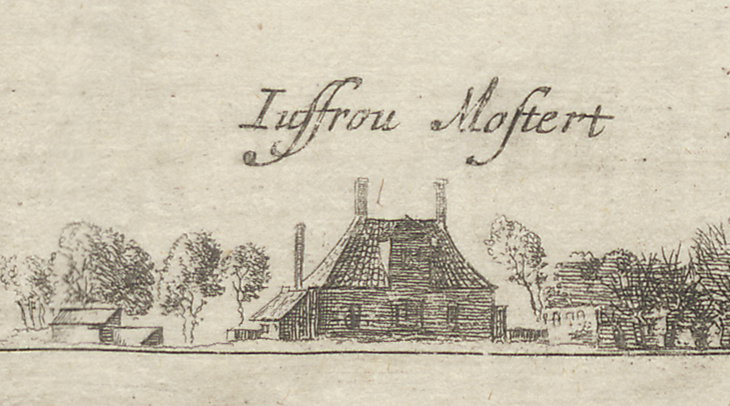 Iuffrou Mostert